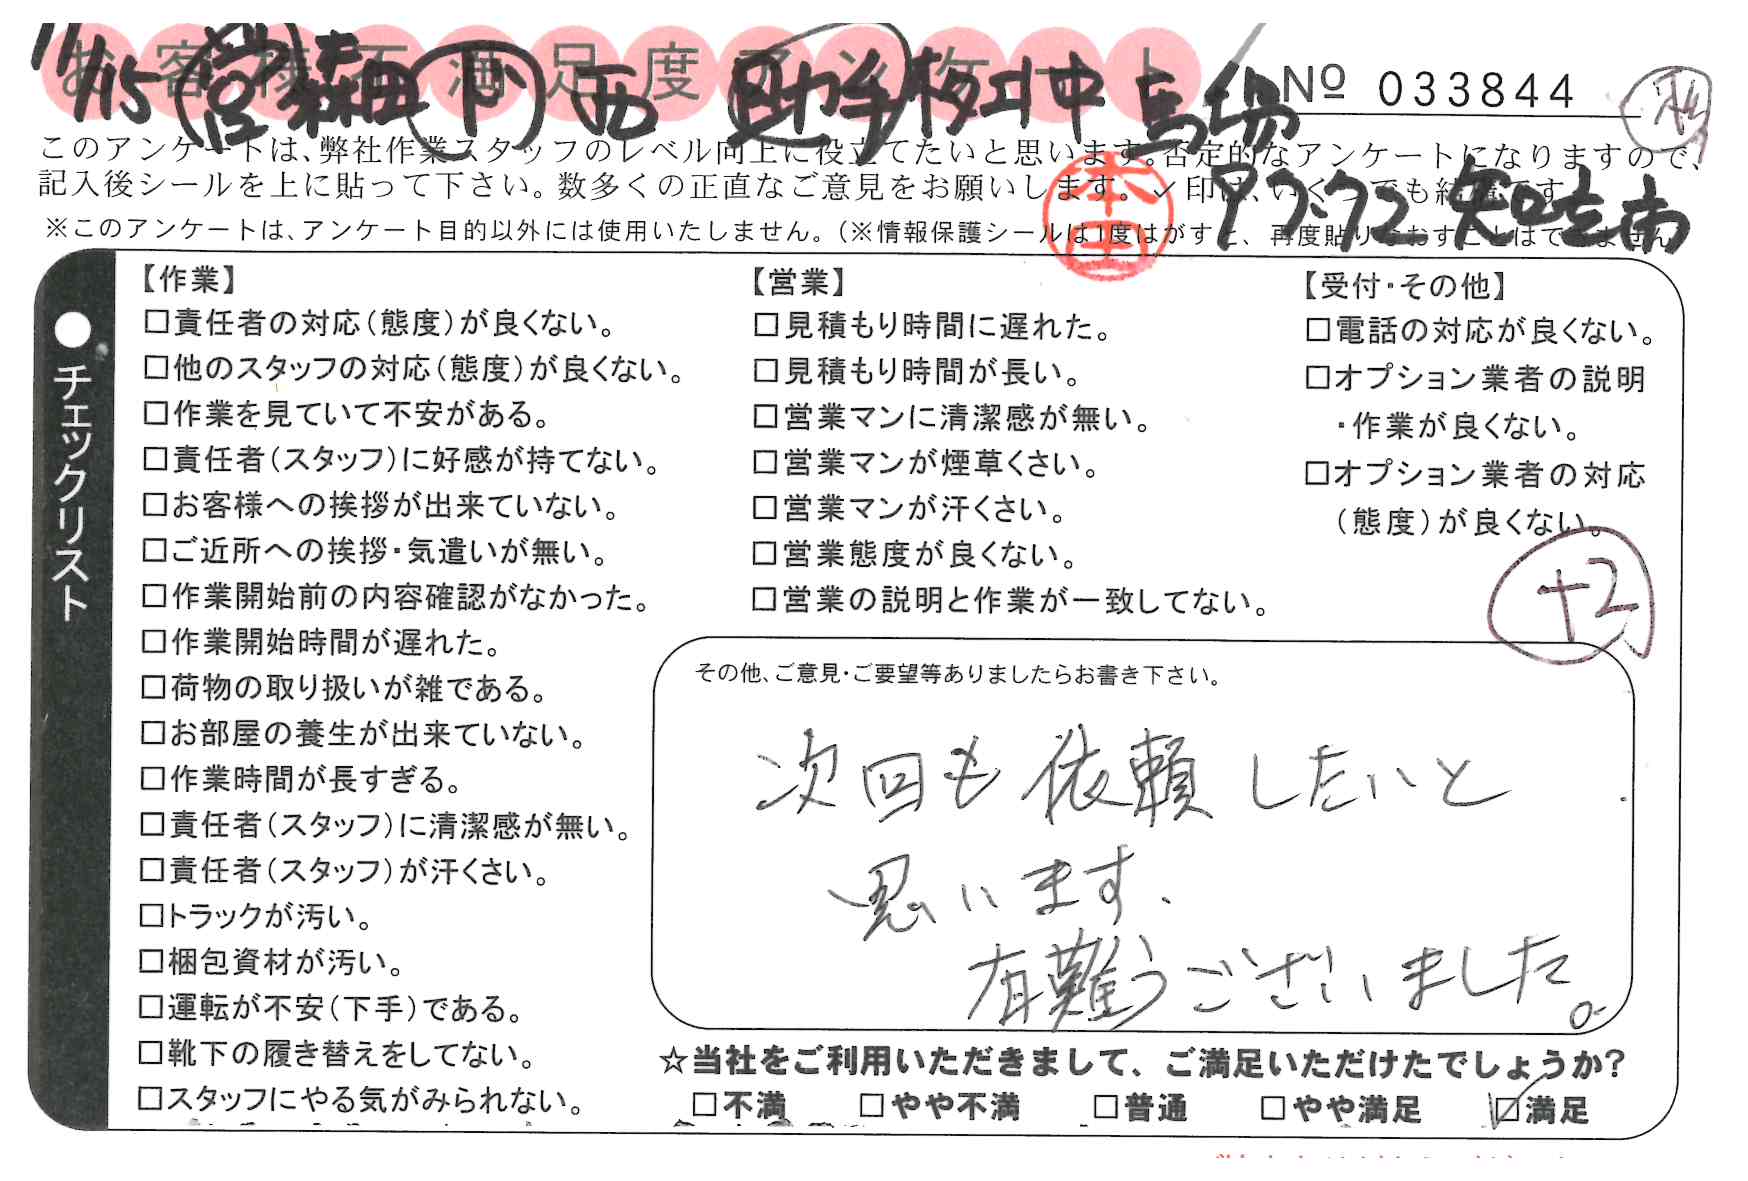 お客様不満足度アンケート
11/15 営 森田 下 西 助手 移山中 馬場
Nº 033844
このアンケートは、弊社作業スタッフのレベル向上に役立てたいと思います。否定的なアンケートになりますので、
記入後シールを上に貼って下さい。数多くの正直なご意見をお願いします。✓印は、いくつでも結構です
本田
※このアンケートは、アンケート目的以外には使用いたしません。(※情報保護シールは1度はがすと、再度貼りなおすことはできません
●チェックリスト
【作業】
□責任者の対応(態度)が良くない。
□他のスタッフの対応(態度)が良くない。
□作業を見ていて不安がある。
□責任者(スタッフ)に好感が持てない。
□お客様への挨拶が出来ていない。
□ご近所への挨拶・気遣いが無い。
□作業開始前の内容確認がなかった。
□作業開始時間が遅れた。
□荷物の取り扱いが雑である。
□お部屋の養生が出来ていない。
□作業時間が長すぎる。
□責任者(スタッフ)に清潔感が無い。
□責任者(スタッフ)が汗くさい。
□トラックが汚い。
□梱包資材が汚い。
□運転が不安(下手)である。
□靴下の履き替えをしてない。
□スタッフにやる気がみられない。
【営業】
□見積もり時間に遅れた。
□見積もり時間が長い。
□営業マンに清潔感が無い。
□営業マンが煙草くさい。
□営業マンが汗くさい。
□営業態度が良くない。
□営業の説明と作業が一致してない。
【受付・その他】
□電話の対応が良くない。
□オプション業者の説明
・作業が良くない。
□オプション業者の対応
(態度)が良くない。
+2
その他、ご意見・ご要望等ありましたらお書き下さい。
次回も依頼したいと
思います.
有難うございました。
☆当社をご利用いただきまして、ご満足いただけたでしょうか?
□不満 □やや不満 □普通 □やや満足 ☑満足